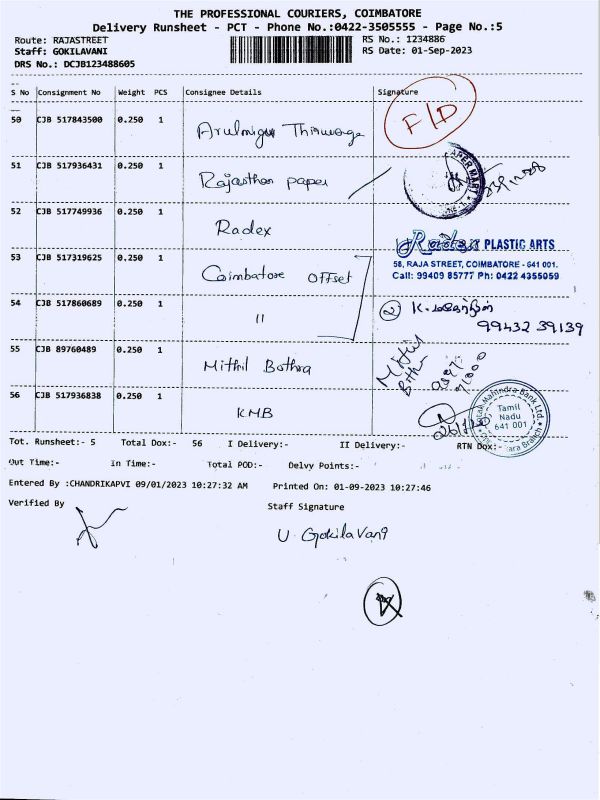 THE PROFESSIONAL COURIERS, COIMBATORE
Delivery Runsheet - PCT - Phone No.:0422-3505555 - Page No.:5
Route: RAJASTREET RS No.: 1234886
Staff: GOKILAVANI RS Date: 01-Sep-2023
DRS No.: DCJB123488605
S No Consignment No Weight PCS Consignee Details Signature
50 CJB 517843500 0.250 1 Arulmigu F/D
51 CJB 517936431 0.250 1 Rajasthan paper PAPER MART
52 CJB 517749936 0.250 1 Radex
Radex PLASTIC ARTS
58, RAJA STREET, COIMBATORE - 641 001.
Call: 99409 85777 Ph: 0422 4355059
53 CJB 517319625 0.250 1 Coimbatore Offset
54 CJB 517860689 0.250 1 11 2 K.
99432 39139
55 CJB 89760489 0.250 1 Mithil Bothra Mithil
56 CJB 517936838 0.250 1 KMB
Mahindra Bank Ltd.
Tamil
Nadu
641 001
Branch
Tot. Runsheet:- 5 Total Dox:- 56 I Delivery:- II Delivery:- RTN Dox:-
Out Time:- In Time:- Total POD:- Delvy Points:-
Entered By :CHANDRIKAPVI 09/01/2023 10:27:32 AM Printed On: 01-09-2023 10:27:46
Verified By Staff Signature
U. Gokilavani